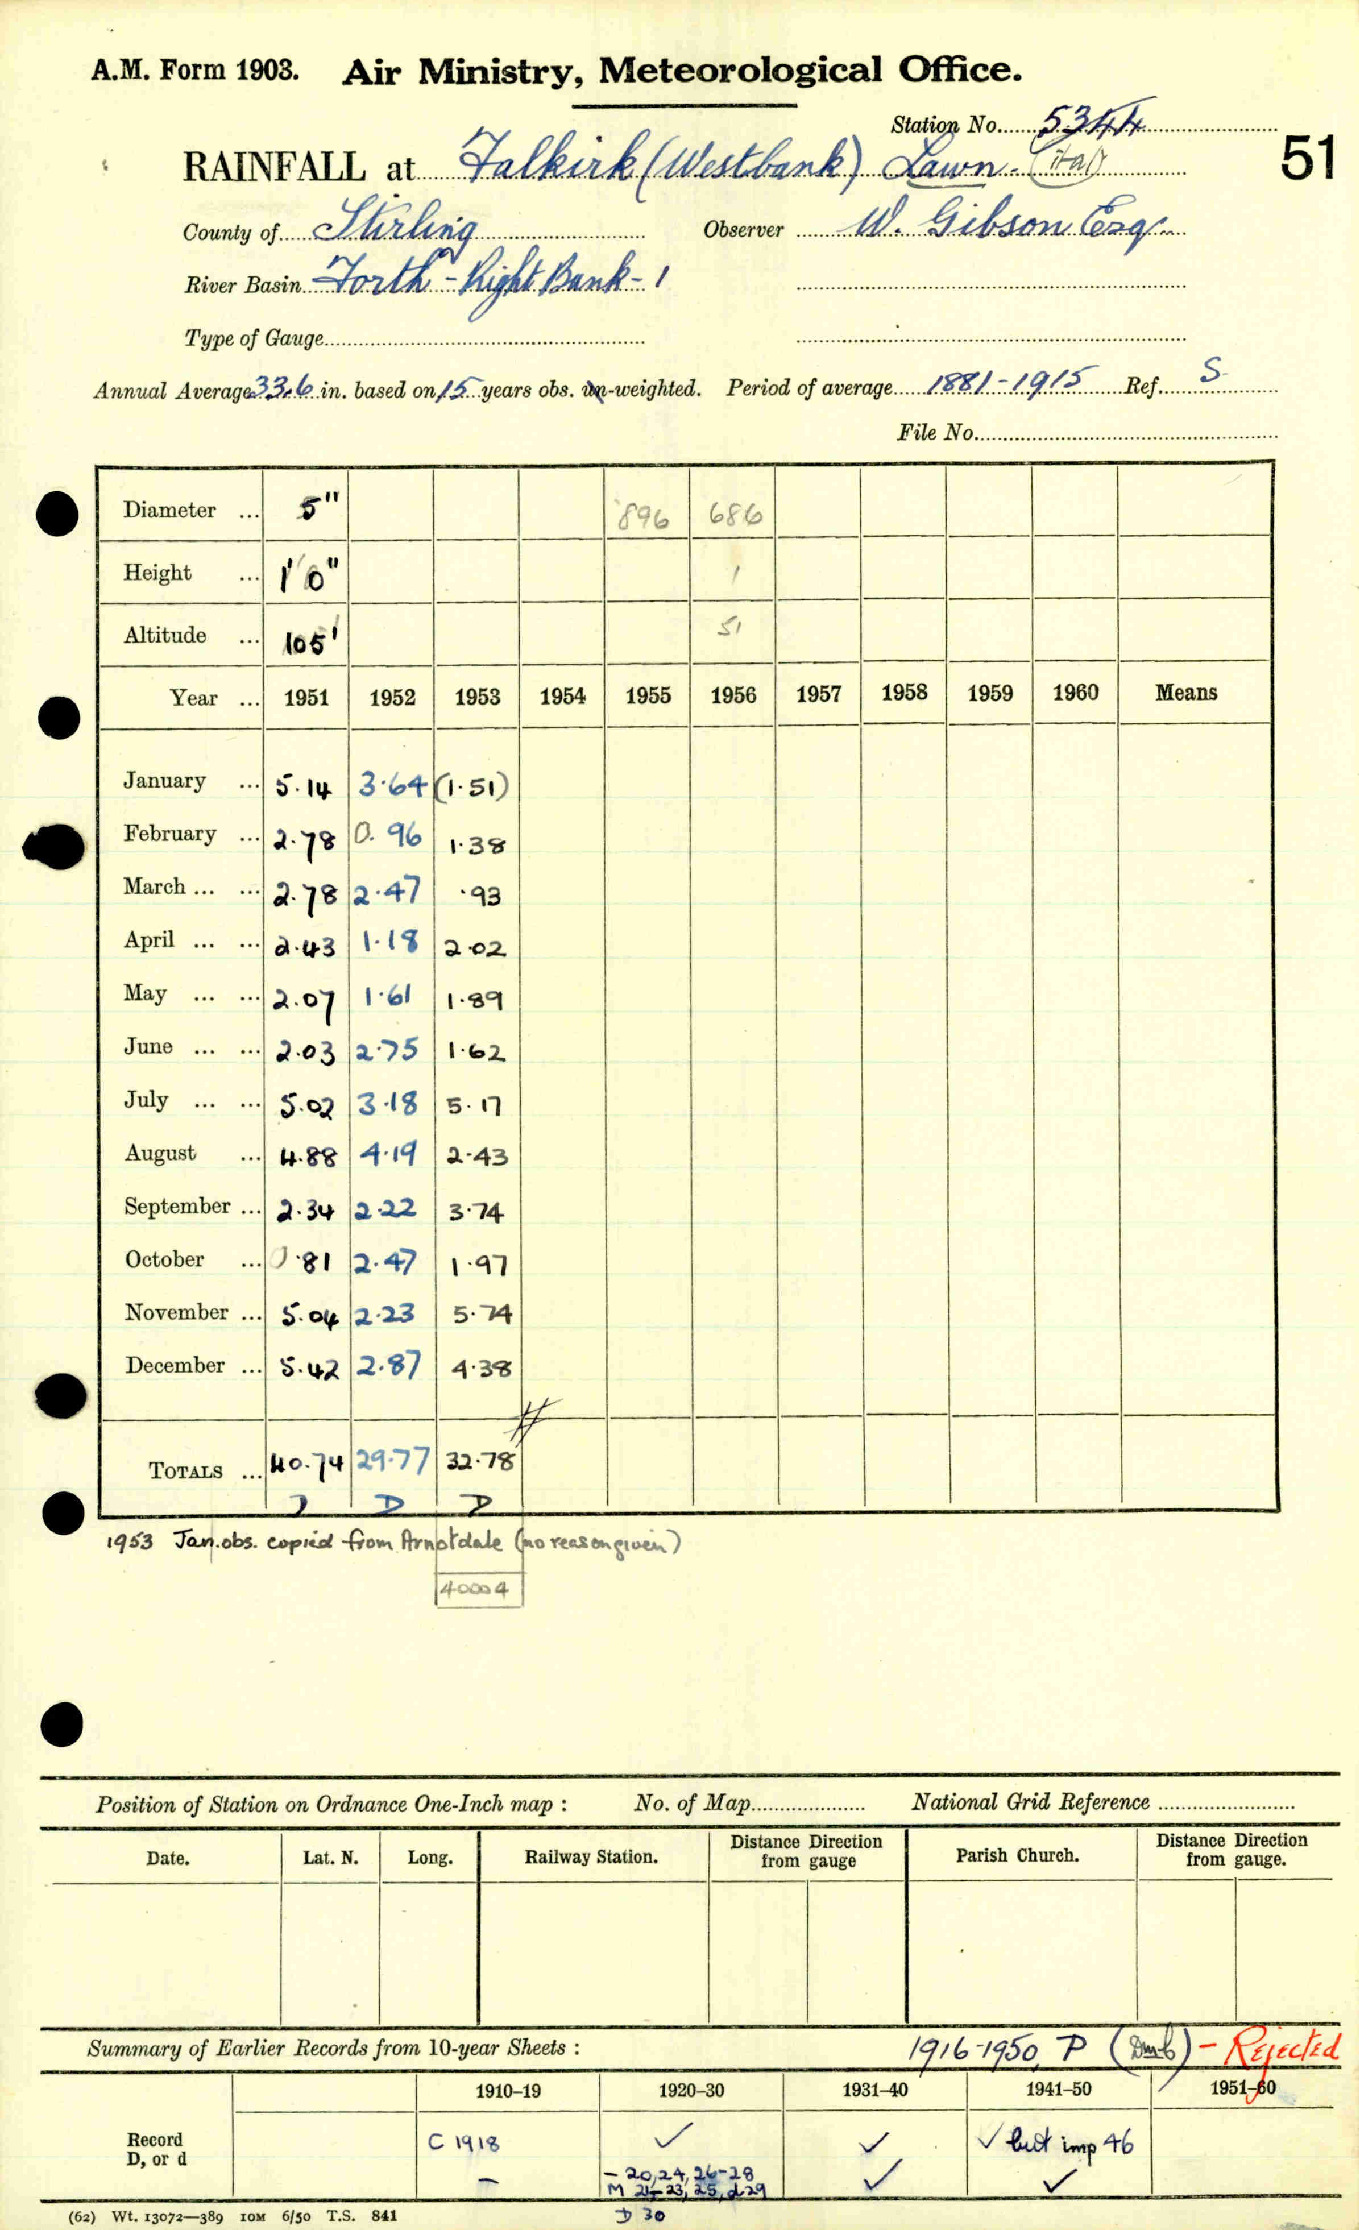 A.M. Form 1903. Air Ministry, Meteorological Office.
Station No. 5344
51
RAINFALL at Falkirk (Westbank) Lawn.
County of Stirling Observer W. Gibson Esq.
River Basin Forth - Right Bank - 1
Type of Gauge
Annual Average 33.6 in. based on 15 years obs. un-weighted. Period of average 1881-1915 Ref. S
File No.
Diameter ... 5" 896 686
Height ... 1' 0" 1
Altitude ... 105' 51
Year ... 1951 1952 1953 1954 1955 1956 1957 1958 1959 1960 Means
January ... 5.14 3.64 (1.51)
February ... 2.78 0.96 1.38
March ... ... 2.78 2.47 .93
April ... ... 2.43 1.18 2.02
May ... ... 2.07 1.61 1.89
June ... ... 2.03 2.75 1.62
July ... ... 5.02 3.18 5.17
August ... 4.88 4.19 2.43
September ... 2.34 2.22 3.74
October ... 0.81 2.47 1.97
November ... 5.04 2.23 5.74
December ... 5.42 2.87 4.38
TOTALS ... 40.74 29.77 32.78
D D D
1953 Jan. obs. copied from Arnotdale (no reason given)
40004
Position of Station on Ordnance One-Inch map : No. of Map National Grid Reference
Date. Lat. N. Long. Railway Station. Distance Direction from gauge Parish Church. Distance Direction from gauge.
Summary of Earlier Records from 10-year Sheets : 1916-1950, P - Rejected
1910–19 1920–30 1931–40 1941–50 1951–60
Record C 1918 ✓ ✓ ✓ but imp 46
D, or d – – 20, 24, 26-28 ✓ ✓
M 21-23, 25, d29
D 30
(62) Wt. 13072—389 10M 6/50 T.S. 841